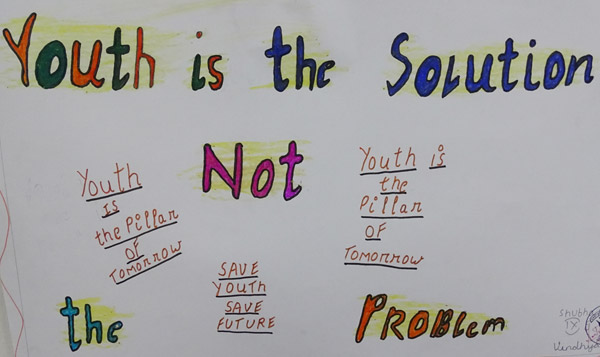 Youth is the Solution
Not
Youth
is
the Pillar
OF
Tomorrow
Youth is
the
Pillar
OF
Tomorrow
SAVE
YOUTH
SAVE
FUTURE
the PROBlem
IX